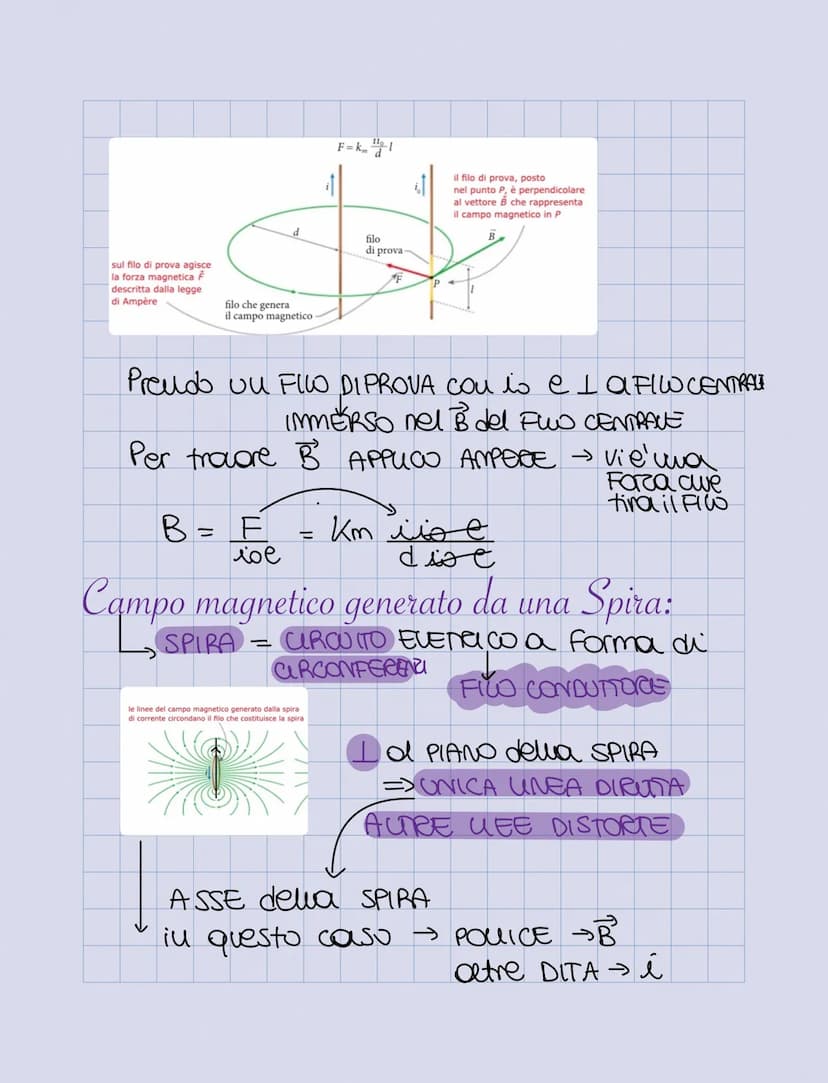 F = kₘ ii₀/d l
i
i₀
il filo di prova, posto
nel punto P, è perpendicolare
al vettore B⃗ che rappresenta
il campo magnetico in P
d
filo
di prova
B⃗
F⃗
P
l
sul filo di prova agisce
la forza magnetica F⃗
descritta dalla legge
di Ampère
filo che genera
il campo magnetico
Prendo un FILO DI PROVA con io e ⊥ al FILO CENTRALE
↓
IMMERSO nel B⃗ del FILO CENTRALE
Per trovare B⃗ APPLICO AMPERE → vi è una
FORZA che
tira il FILO
B = F/(iol) = Km (i io l)/(d io l)
Campo magnetico generato da una Spira:
↳ SPIRA = CIRCUITO ELETTRICO a forma di
CIRCONFERENZA
↓
FILO CONDUTTORE
le linee del campo magnetico generato dalla spira
di corrente circondano il filo che costituisce la spira
⊥ al PIANO della SPIRA
⇒ UNICA LINEA DIRITTA
ALTRE LINEE DISTORTE
ASSE della SPIRA
in questo caso → POLLICE → B⃗
altre DITA → i